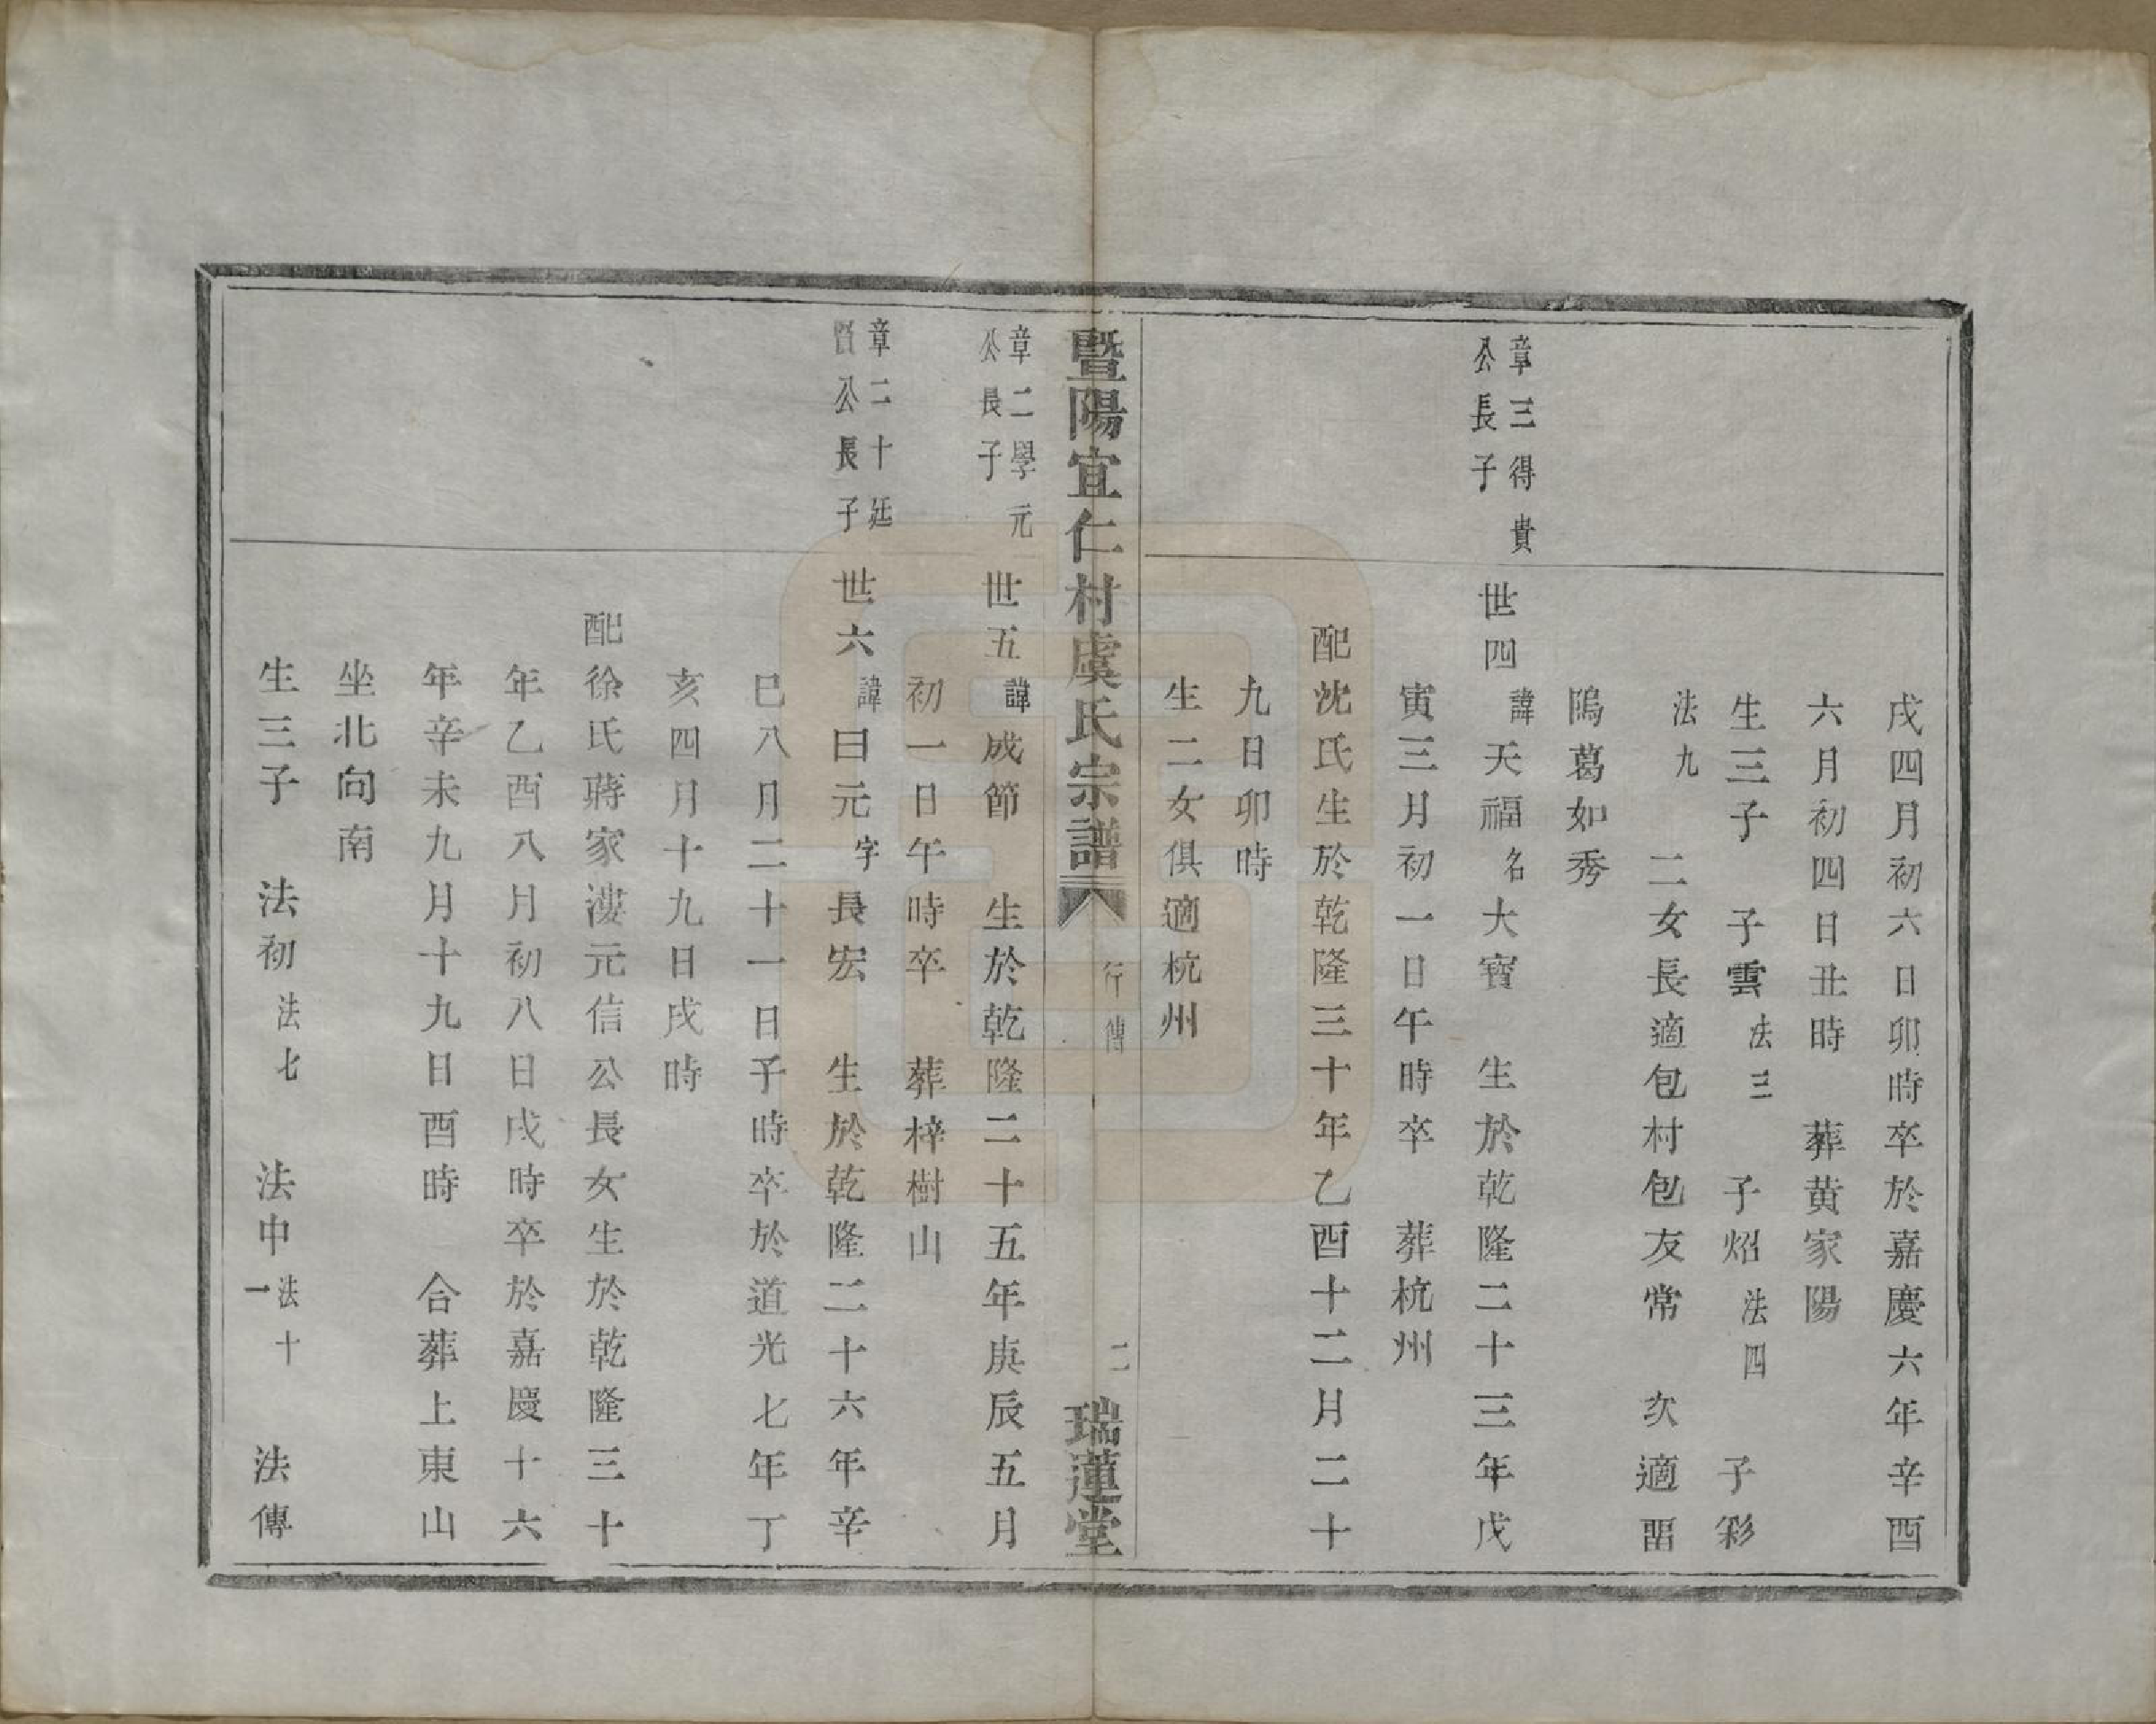 戌四月初六日卯時卒於嘉慶六年辛酉
六月初四日丑時　葬黄家陽
生三子　子雲法三　子炤法四　子彩
法九　二女長適包村包友常　次適畱
鵭葛如秀
章三得貴
公長子
世四諱天福名大寳　生於乾隆二十三年戊
寅三月初一日午時卒　葬杭州
配沈氏生於乾隆三十年乙酉十二月二十
九日卯時
生二女俱適杭州
暨陽宜仁村虞氏宗譜　行傳　二　瑞蓮堂
章二學元
公長子
世五諱成節　生於乾隆二十五年庚辰五月
初一日午時卒　葬梓樹山
章二十廷
賢公長子
世六諱曰元字長宏　生於乾隆二十六年辛
巳八月二十一日子時卒於道光七年丁
亥四月十九日戌時
配徐氏蔣家漊元信公長女生於乾隆三十
年乙酉八月初八日戌時卒於嘉慶十六
年辛未九月十九日酉時　合葬上東山
坐北向南
生三子　法初法七　法中法十一　法傳